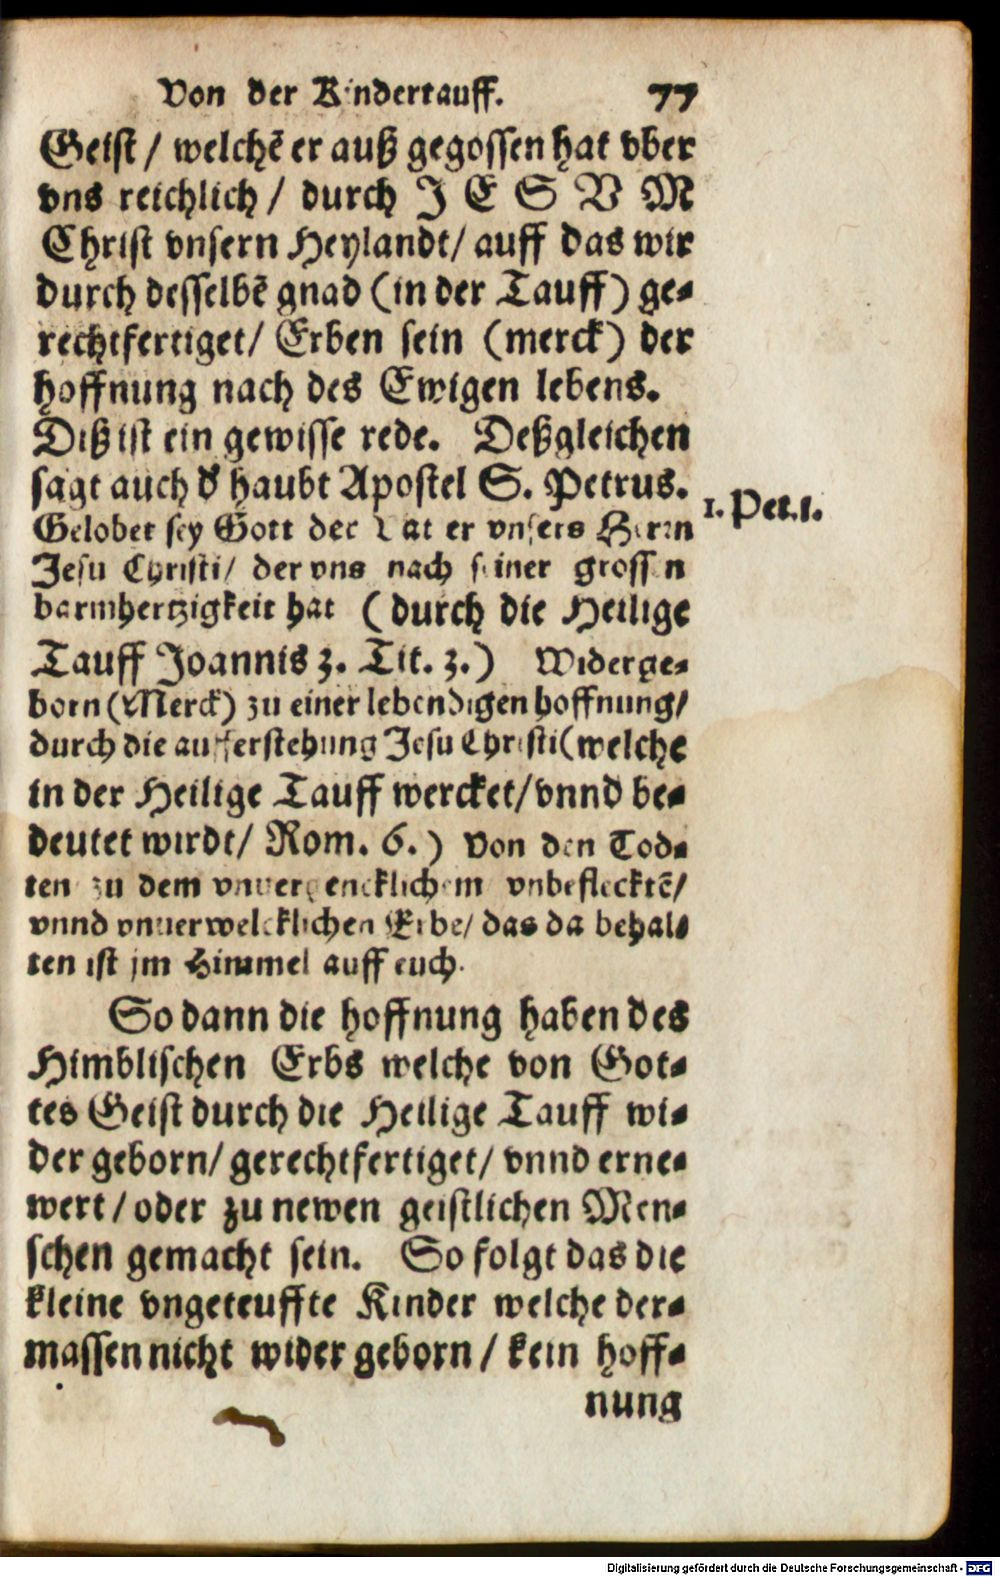 Von der Kindertauff. 77
Geist / welchẽ er auß gegossen hat vber
vns reichlich / durch J E S V M
Christ vnsern Heylandt / auff das wir
durch desselbẽ gnad (in der Tauff) ge-
rechtfertiget / Erben sein (merck) der
hoffnung nach des Ewigen lebens.
Diß ist ein gewisse rede. Deßgleichen
sagt auch d' haubt Apostel S. Petrus.
1. Pet. 1.
Gelobet sey Gott der Vatter vnsers Herrn
Jesu Christi / der vns nach seiner grossen
barmhertzigkeit hat (durch die Heilige
Tauff Joannis 3. Tit. 3.) Widerge-
born (Merck) zu einer lebendigen hoffnung /
durch die aufferstehung Jesu Christi (welche
in der Heilige Tauff wercket / vnnd be-
deutet wirdt / Rom. 6.) Von den Tod-
ten zu dem vnuergencklichem vnbeflecktẽ /
vnnd vnuerwelcklichen Erbe / das da behal-
ten ist jm Himmel auff euch.
So dann die hoffnung haben des
Himblischen Erbs welche von Got-
tes Geist durch die Heilige Tauff wi-
der geborn / gerechtfertiget / vnnd erne-
wert / oder zu newen geistlichen Men-
schen gemacht sein. So folgt das die
kleine vngeteuffte Kinder welche der-
massen nicht wider geborn / kein hoff-
nung
Digitalisierung gefördert durch die Deutsche Forschungsgemeinschaft - DFG